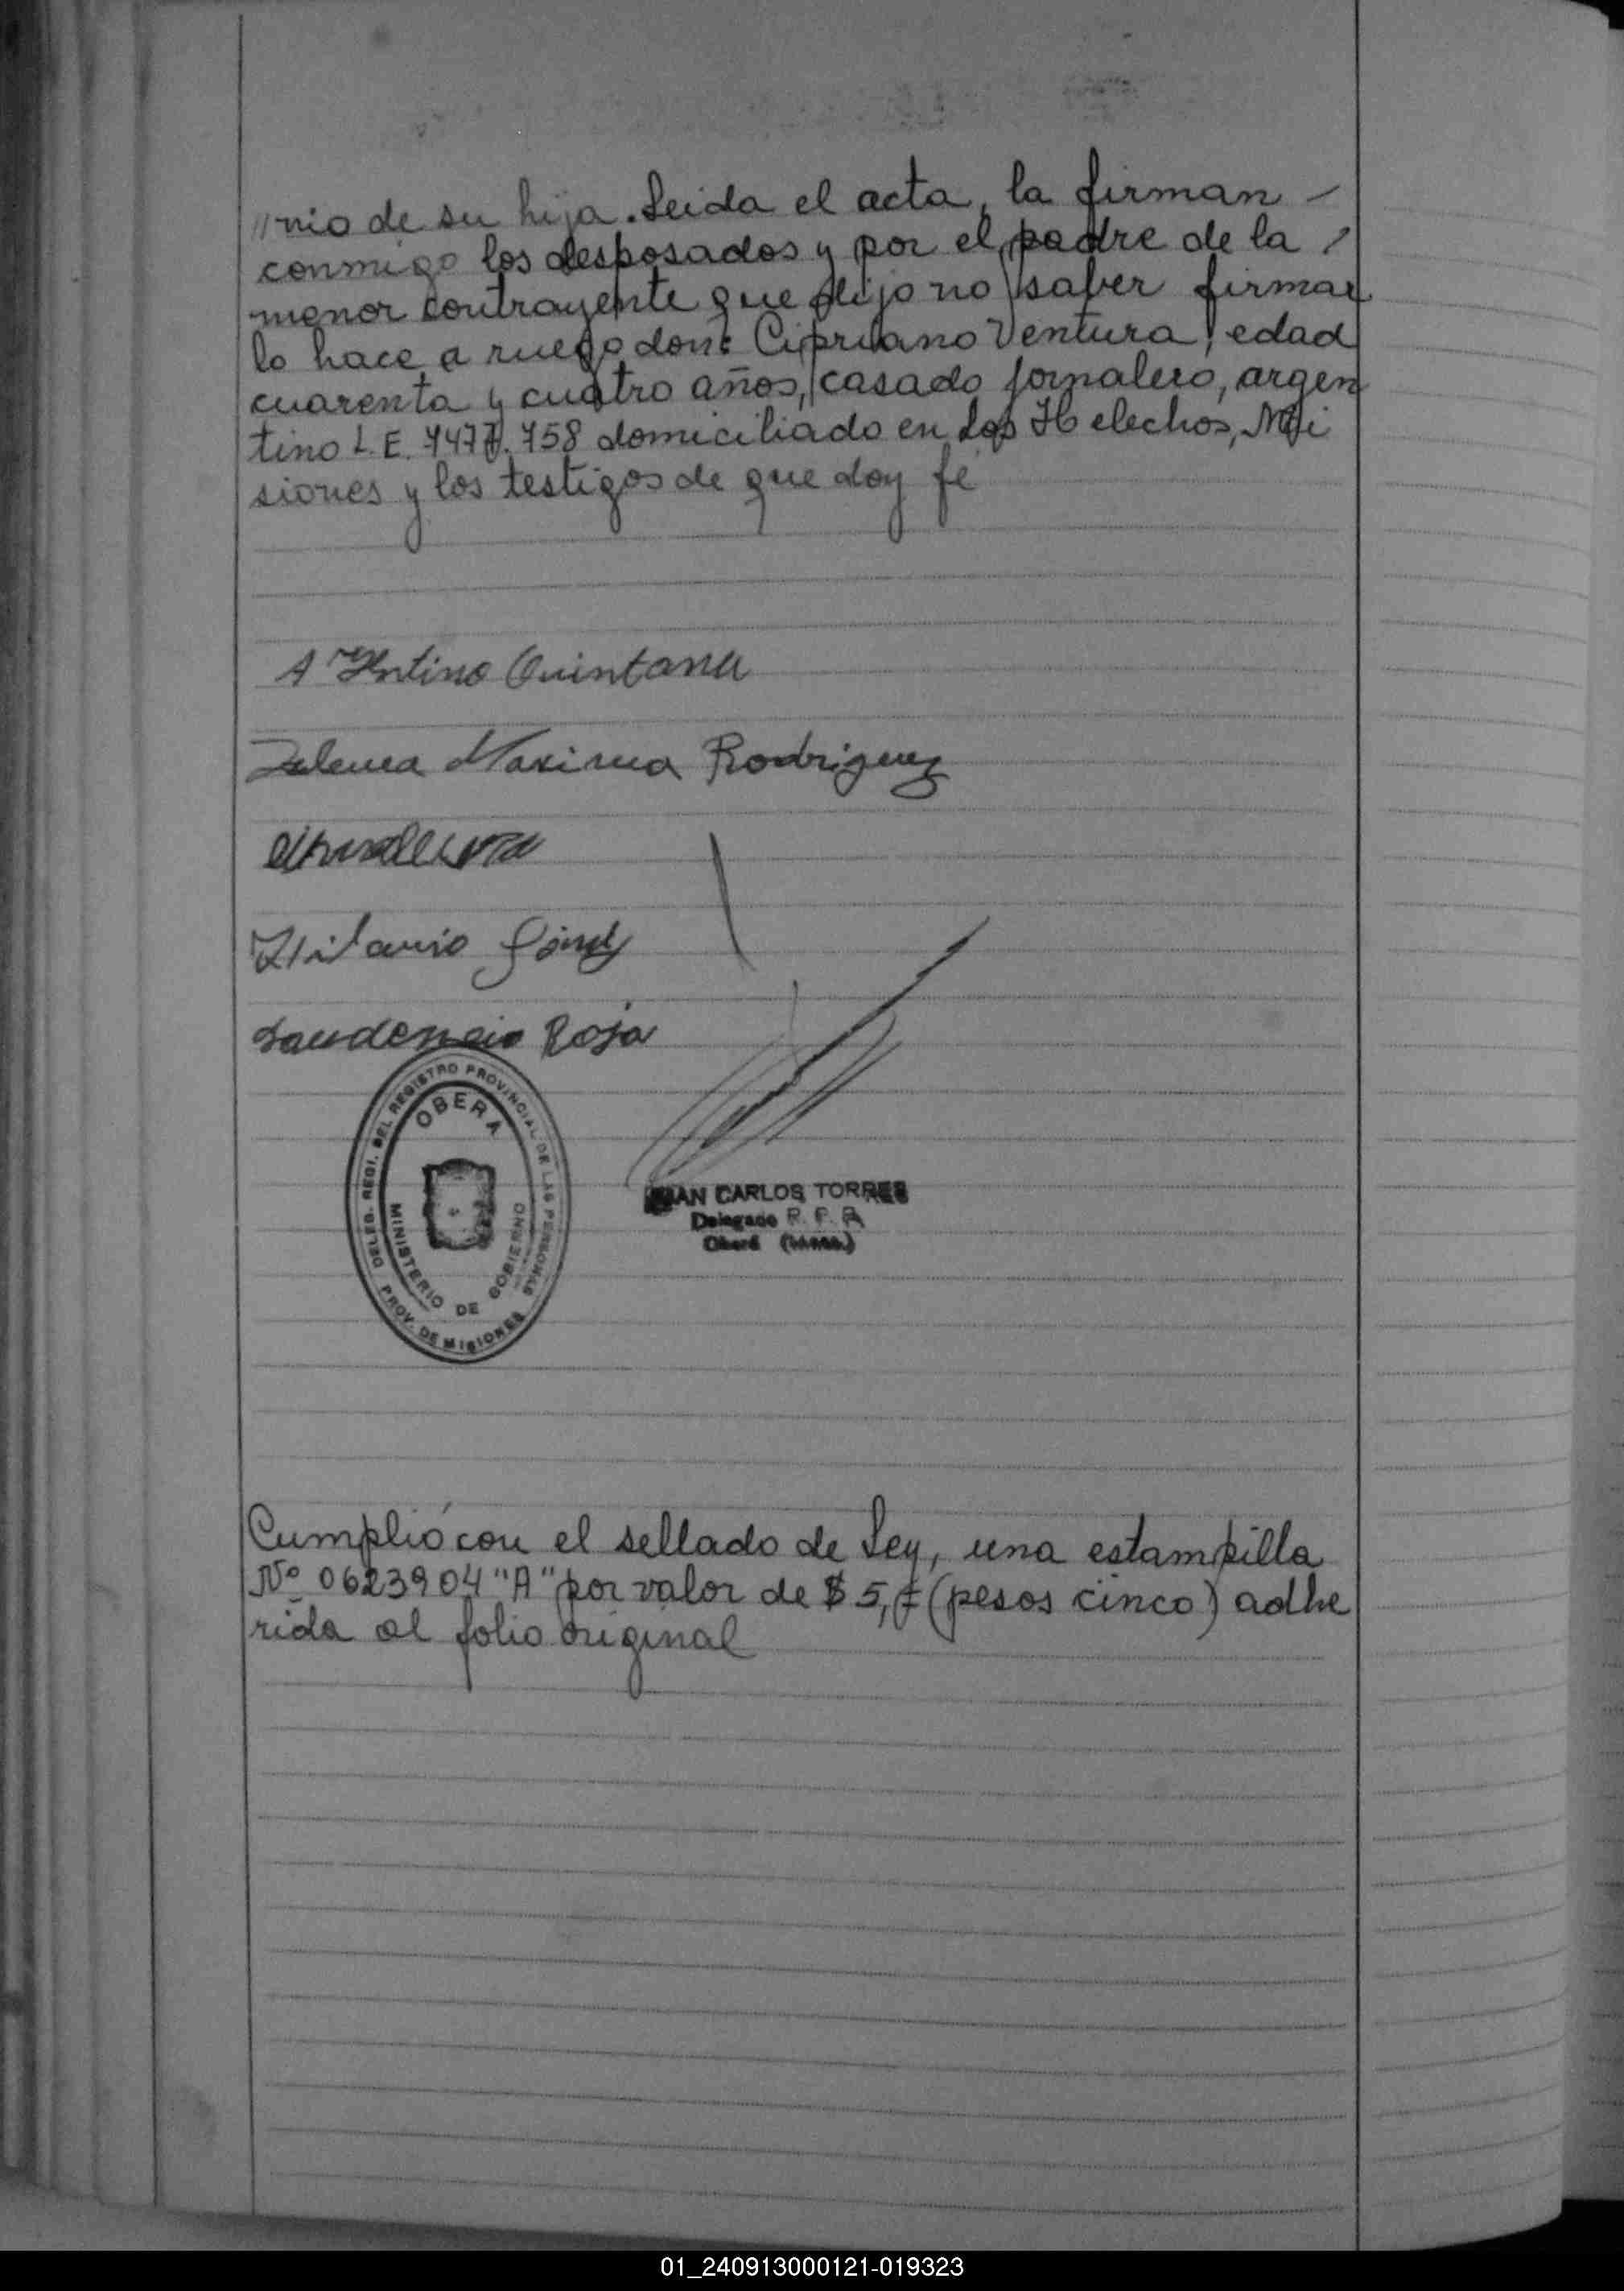 //nio de su hija. Leida el acta, la firman -
conmigo los desposados y por el padre de la /
menor contrayente que dijo no saber firmar
lo hace a ruego don: Cipriano Ventura, edad
cuarenta y cuatro años, casado jornalero, argen
tino L.E. 7477.758 domiciliado en Los Helechos, Mi
siones y los testigos de que doy fé
Quintana
Maxima Rodriguez
Hilario
Gaudencio Roja
DELEG. REGI. DEL REGISTRO PROVINCIAL DE LAS PERSONAS
OBERA
MINISTERIO DE GOBIERNO
PROV. DE MISIONES
JUAN CARLOS TORRES
Delegado R. P. P.
Oberá (Mnes.)
Cumplió con el sellado de Ley, una estampilla
Nº 0623904 "A" por valor de $ 5,= (pesos cinco) adhe
rida al folio original
01_240913000121-019323